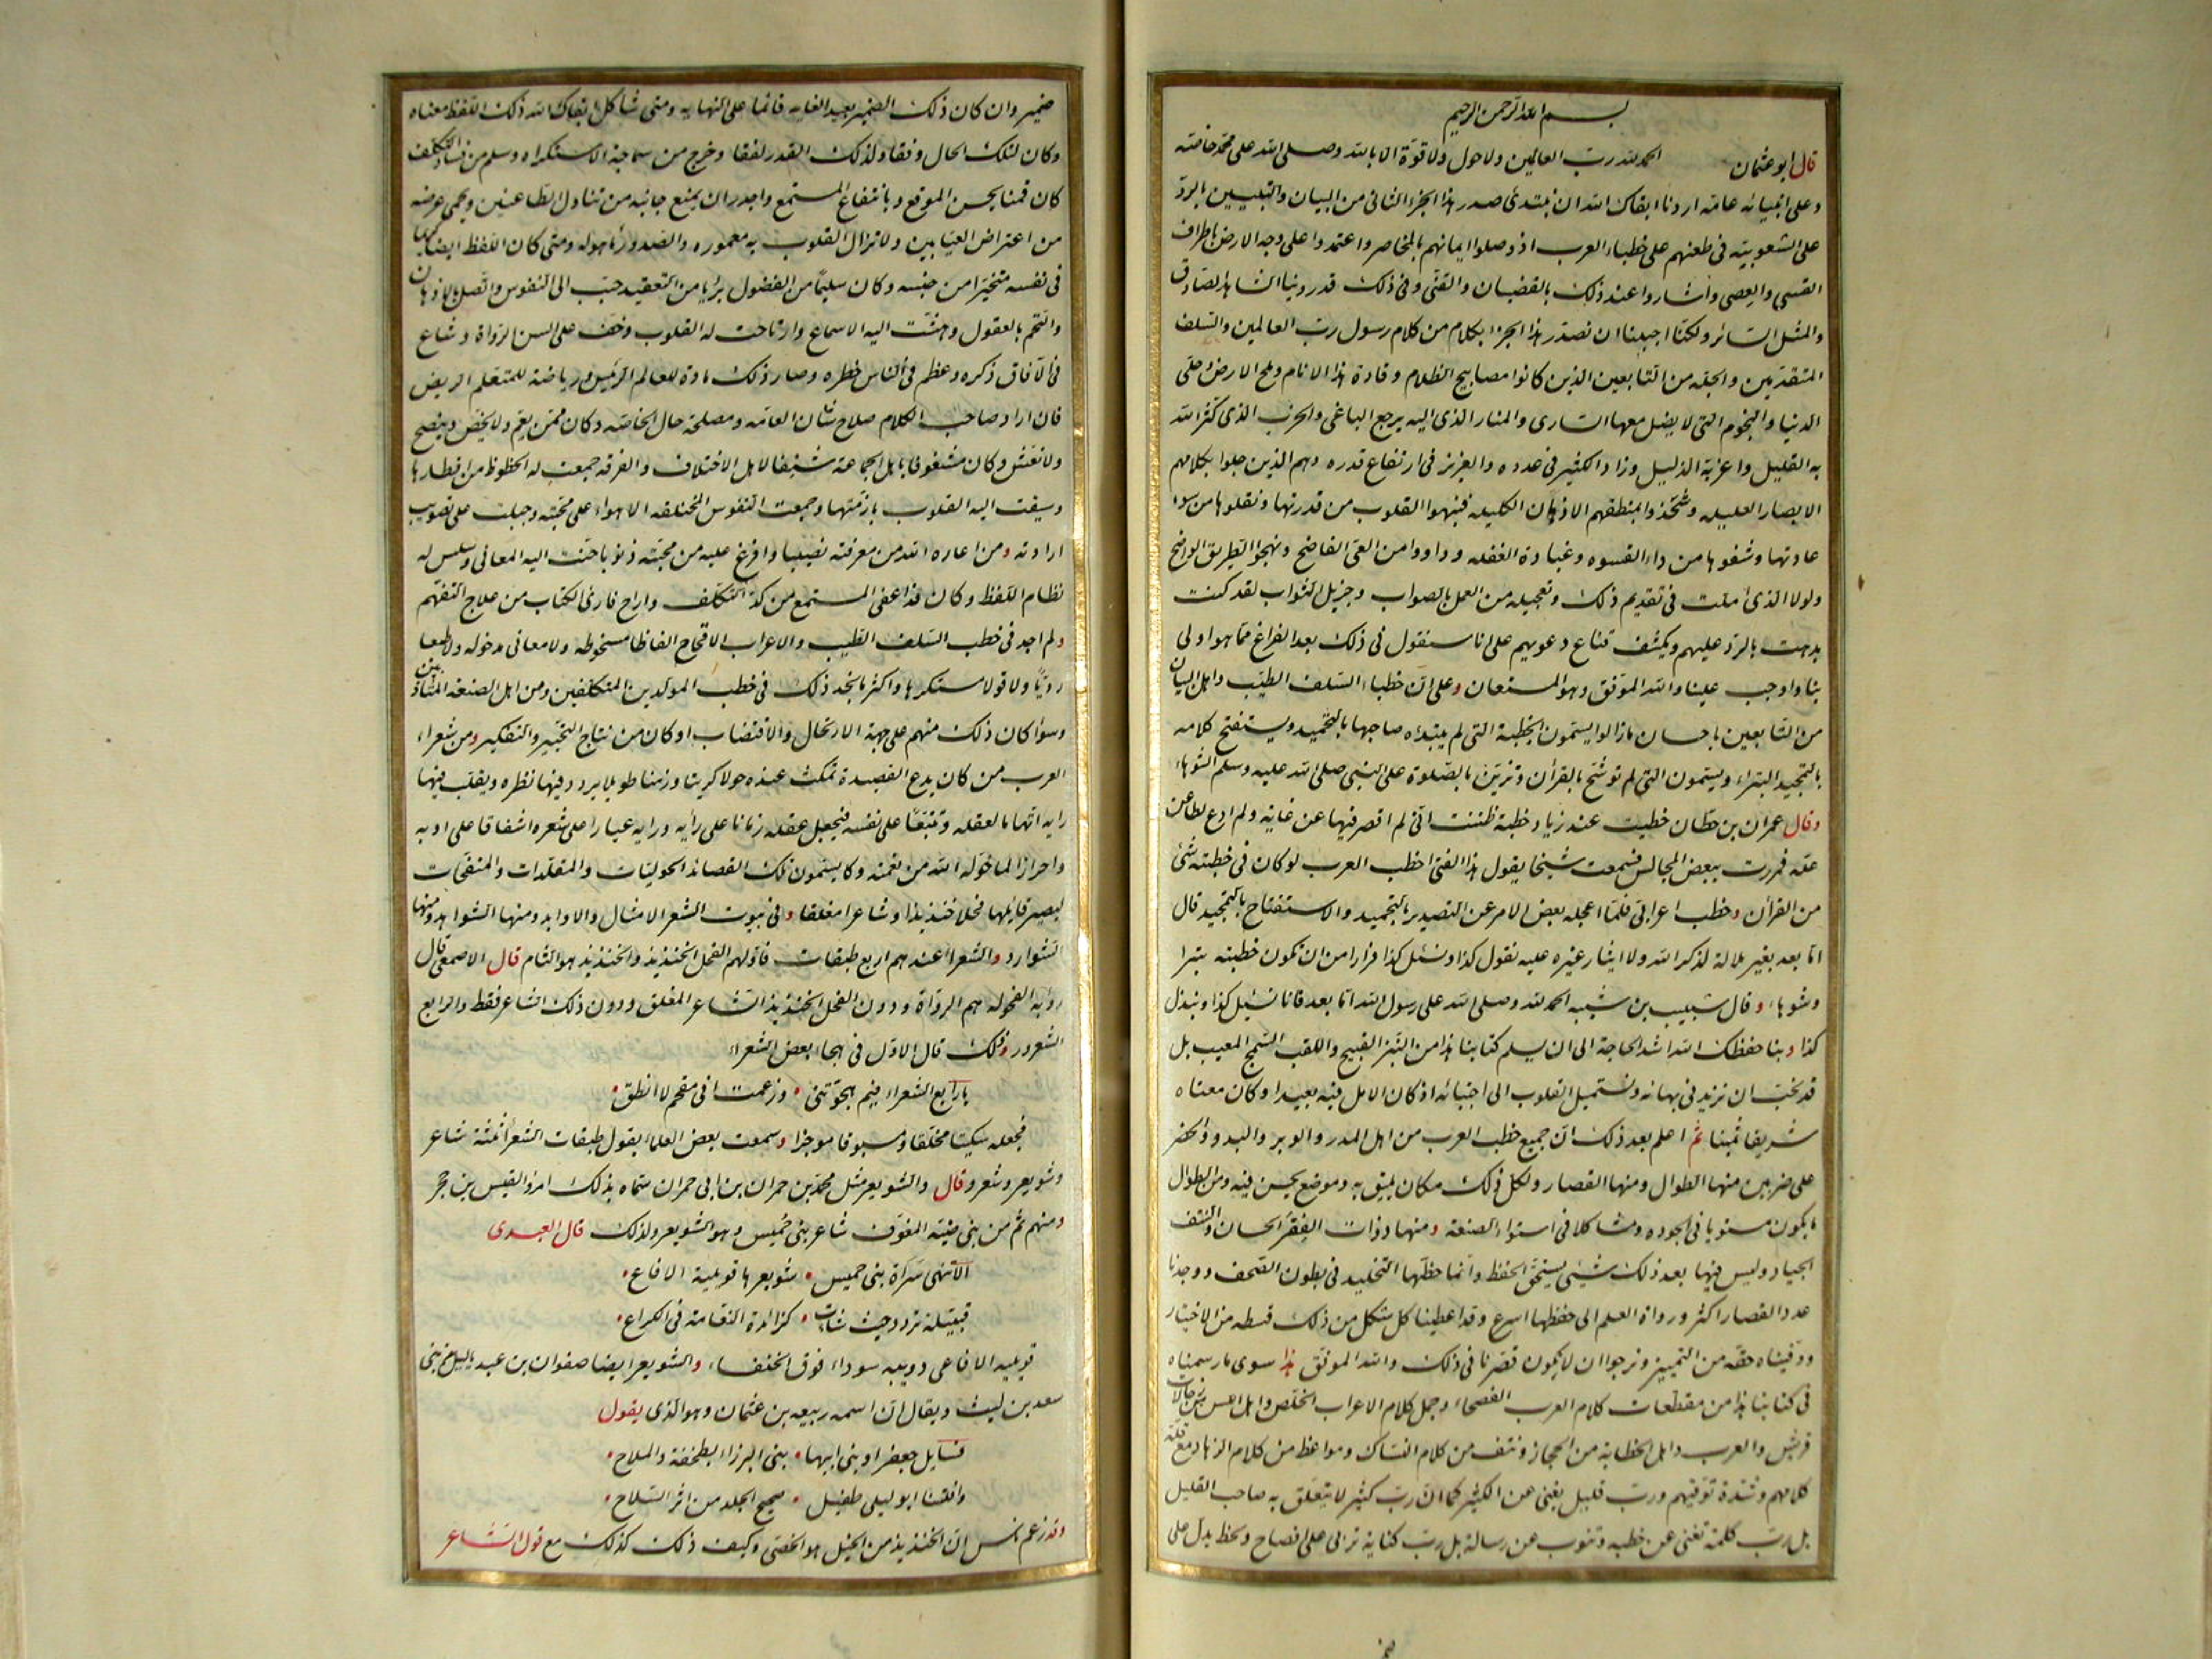 بسم الله الرحمن الرحيم
قال ابو عثمان الحمد لله رب العالمين ولا حول ولا قوة الا بالله وصلى الله على محمد خاصته
وعلى انبيائه عامه اردنا ابقاك الله ان نبتدئ صدر هذا الجزء الثانى من البيان والتبيين بالرد
على الشعوبيه فى طعنهم على خطباء العرب اذ وصلوا ايمانهم بالمخاصر واعتمدوا على وجه الارض باطراف
القسى والعصى واشاروا عند ذلك بالقضبان والقنى وفى ذلك قد روينا الشاهد الصادق
والمثل السائر ولكنا احببنا ان نصدر هذا الجزء بكلام من كلام رسول رب العالمين والسلف
المتقدمين والجله من التابعين الذين كانوا مصابيح الظلام وقادة هذا الانام وملح الارض وحلى
الدنيا والنجوم التى لا يضل معها السارى والمنار الذى اليه يرجع الباغى والحزب الذى كثر الله
به القليل واعز به الذليل وزاد الكثير فى عدده والعزيز فى ارتفاع قدره وهم الذين جلوا بكلامهم
الابصار العليله وشحذوا بمنطقهم الاذهان الكليله فنبهوا القلوب من قدرتها ونقلوها من سوء
عادتها وشفوها من داء القسوه وغباوة الغفله وداووا من العى الفاضح ونهجوا الطريق الواضح
ولولا الذى املت فى تقديم ذلك وتعجيله من العمل بالصواب وجزيل الثواب لقد كنت
بدهت بالرد عليهم وبكشف قناع دعويهم على انا سنقول فى ذلك بعد الفراغ مما هو اولى
بنا واوجب علينا والله الموفق وهو المستعان وعلى ان خطباء السلف الطيب واهل البيان
من التابعين باحسان ما زالوا يسمون الخطبة التى لم يبتداه صاحبها بالتحميد ويستفتح كلامه
بالتمجيد البتراء ويسمون التى لم توشح بالقرآن وتزين بالصلوة على النبى صلى الله عليه وسلم الشوهاء
وقال عمران بن حطان خطبت عند زياد خطبة ظننت انى لم اقصر فيها عن غايه ولم ادع لطاعن
عله فمررت ببعض المجالس فسمعت شيخا يقول هذا الفتى اخطب العرب لو كان فى خطبته شئ
من القرآن وخطب اعرابى فلما اعجله بعض الامر عن التصدير بالتحميد والاستفتاح بالتمجيد قال
اما بعد بغير ملالة لذكر الله ولا ايثار غيره عليه نقول كذا ونسئل كذا فرارا من ان تكون خطبته بترا
وشوهاء وقال شبيب بن شيبه الحمد لله وصلى الله على رسول الله اما بعد فانا نسئل كذا ونبذل
كذا وبنا حفظك الله اشد الحاجة الى ان يسلم كتابنا هذا من النبز القبيح واللقب السمج المعيب بل
قد نحب ان نزيد فى بهائه ونستميل القلوب الى اجتبائه اذ كان الامل فيه بعيدا وكان معناه
شريفا ثمينا ثم اعلم بعد ذلك ان جميع خطب العرب من اهل المدر والوبر والبدو والحضر
على ضربين منها الطوال ومنها القصار ولكل ذلك مكان يليق به وموضع يحسن فيه ومن الطوال
ما يكون مستويا فى الجوده ومشاكلا فى استواء الصنعه ومنها ذوات الفقر الحسان والنتف
الجياد وليس فيها بعد ذلك شيئى يستحق الحفظ وانما حظها التخليد فى بطون الصحف ووجدنا
عدد القصار اكثر ورواة العلم الى حفظها اسرع وقد اعطينا كل شكل من ذلك قسطه من الاختيار
ووفيناه حقه من التمييز ونرجوا ان لا يكون قصرنا فى ذلك والله الموفق هذا سوى ما رسمناه
فى كتابنا هذا من مقطعات كلام العرب الفصحاء وجمل كلام الاعراب الخلص واهل اللسن من رجالات
قريش والعرب واهل الخطابة من الحجاز ونتف من كلام النساك ومواعظ من كلام الزهاد مع قلة
كلامهم وشدة توقيهم ورب قليل يغنى عن الكثير كما ان رب كثير لا يتعلق به صاحب القليل
بل رب كلمة تغنى عن خطبه وتنوب عن رسالة بل رب كناية تربى على افصاح ولحظ يدل على
ضمير وان كان ذلك الضمير بعيد الغايه قائما على النهايه ومتى شاكل ابقاك الله ذلك اللفظ معناه
وكان لتلك الحال وفقا ولذلك القدر لفقا وخرج من سماجة الاستكراه وسلم من فساد التكلف
كان قمنا بحسن الموقع وبانتفاع المستمع واجدر ان يمنع جانبه من تناول الطاعنين ويحمى عرضه
من اعتراض العيابين ولا تزال القلوب به معموره والصدور ماهوله ومتى كان اللفظ ايضا كريما
فى نفسه متخيرا من جنسه وكان سليما من الفضول بريا من التعقيد حبب الى النفوس واتصل بالاذهان
والتحم بالعقول وهشت اليه الاسماع وارتاحت له القلوب وخف على السن الرواة وشاع
فى الآفاق ذكره وعظم فى الناس خطره وصار ذلك مادة للعالم الرئيس ورياضة للمتعلم الريض
فان اراد صاحب الكلام صلاح شان العامه ومصلحة حال الخاصه وكان ممن يعم ولا يخص وينصح
ولا يغش وكان مشغوفا باهل الجماعة شنفا لاهل الاختلاف والفرقه جمعت له الحظوظ من اقطارها
وسيقت اليه القلوب بازمتها وجمعت النفوس المختلفه الاهواء على محبته وجبلت على تصويب
ارادته ومن اعاره الله من معرفته نصيبا وافرغ عليه من محبته ذنوبا حنت اليه المعانى وسلس له
نظام اللفظ وكان قد اعفى المستمع من كد التكلف واراح قارئ الكتاب من علاج التفهم
ولم اجد فى خطب السلف الطيب والاعراب الاقحاح الفاظا مسخوطه ولا معانى مدخوله ولا طبعا
رديا ولا قولا مستكرها واكثر ما نجد ذلك فى خطب المولدين المتكلفين ومن اهل الصنعه المتأدبين
وسواء كان ذلك منهم على جهة الارتجال والاقتضاب او كان من نتاج التحبير والتفكير ومن شعراء
العرب من كان يدع القصيدة تمكث عنده حولا كريتا وزمنا طويلا يردد فيها نظره ويقلب فيها
رايه اتهاما لعقله وتتبعا على نفسه فيجعل عقله زماما على رأيه ورايه عيارا على شعره اشفاقا على ادبه
واحرازا لما خوله الله من نعمته وكا يسمون تلك القصائد الحوليات والمقلدات والمنقحات
ليصير قايلها فحلا خنذيذا وشاعرا مفلقا وفى بيوت الشعر الامثال والاوابد ومنها الشواهد ومنها
الشوارد والشعراء عندهم اربع طبقات فاولهم الفحل الخنذيذ والخنذيذ هو التام قال الاصمعى قال
رؤبه الفحوله هم الرواة ودون الفحل الخنذيذ الشاعر المفلق ودون ذلك الشاعر فقط والرابع
الشعرور وذلك قال الاول فى هجاء بعض الشعراء
يا رابع الشعراء فيم هجوتنى ٠ وزعمت انى مفحم لا انطق ٠
فجعله سكيتا مخلفا ومسبوقا موخرا وسمعت بعض العلماء يقول طبقات الشعرا ثلثة شاعر
وشويعر وشعرو قال والشويعر مثل محمد بن حمران بن ابى حمران سماه بذلك امرؤ القيس بن حجر
ومنهم ثم من بنى ضبه المفوف شاعر بنى حميس وهو الشويعر ولذلك قال العبدى
الا تنهى سراة بنى حميس ٠ شويعرها فويلية الافاع ٠
قبيلة تردد حيث شات ٠ كزائدة النعامة فى الكراع ٠
فويليه الافاعى دويبه سوداء فوق الخنفساء والشويعر ايضا صفوان بن عبد ياليل من بنى
سعد بن ليث ويقال ان اسمه ربيعه بن عثمان وهو الذى يقول
فسايل جعفرا وبنى ابيها ٠ بنى البرزا بطخفة والملاح ٠
وافلتنا ابو ليلى طفيل ٠ صحيح الجلد من اثر السلاح ٠
وقد زعم ناس ان الخنذيذ من الخيل هو الخصى وكيف ذلك كذلك مع قول الشاعر